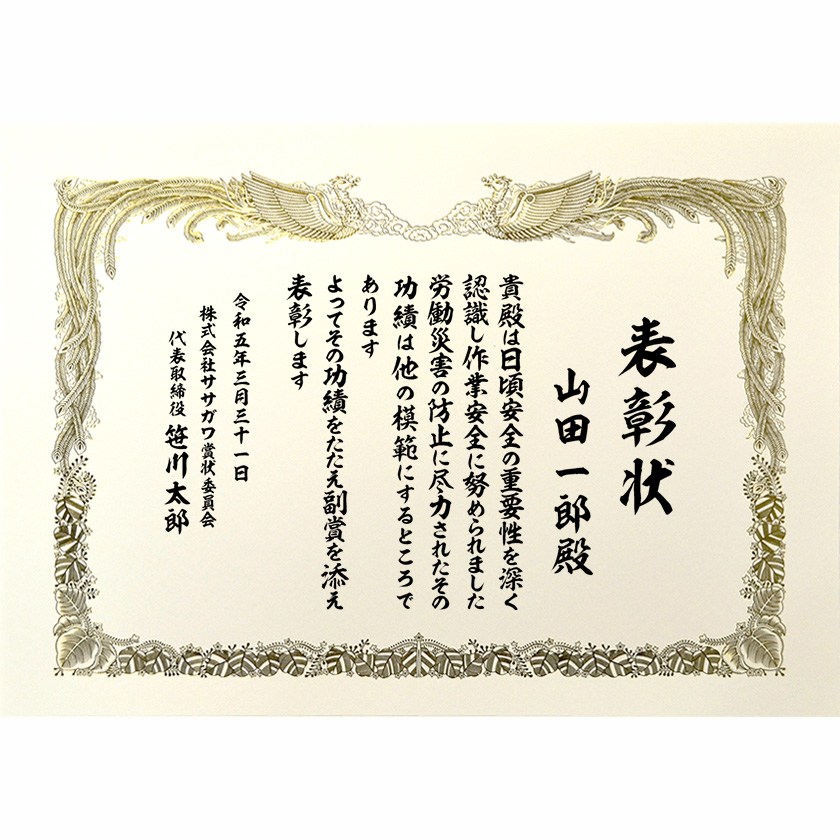 表彰状
山田一郎殿
貴殿は日頃安全の重要性を深く
認識し作業安全に努められました
労働災害の防止に尽力されたその
功績は他の模範にするところで
あります
よってその功績をたたえ副賞を添え
表彰します
令和五年三月三十一日
株式会社ササガワ賞状委員会
代表取締役 笹川太郎